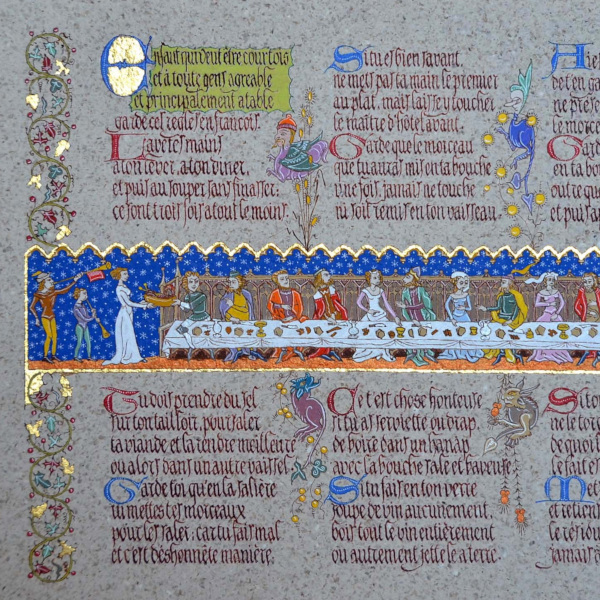 Enfant qui veut être courtois
et à toute gens agréable
et principalement à table
garde ces règles en françois
Lave tes mains
à ton lever, à ton diner,
et puis au souper sans finasser:
ce sont trois fois à tout le moins.
Si tu es bien savant,
ne mets pas ta main le premier
au plat, mais laisse y toucher
le maître d'hôtel avant.
Garde que le morceau
que tu auras mis en ta bouche
une fois, jamais ne touche
ni soit remis en ton vaisseau.
de t en ga
ne prése
le morce
Gard
en ta bo
outre que
et puis an
Tu dois prendre du sel
sur ton tailloir, pour saler
ta viande et la rendre meilleure
ou alors dans un autre vaissel.
Garde toi qu'en la salière
tu mettes tes morceaux
pour les saler: car tu fais mal
et c'est déshonnête manière.
Ce t'est chose honteuse
si tu as serviette ou drap,
de boire dans un hanap
avec la bouche sale et baveuse.
Si tu fais en ton verre
soupe de vin aucunement,
bois tout le vin entièrement
ou autrement jette le à terre.
Si to
ne le to
de quoi
Met
et retien
jamais